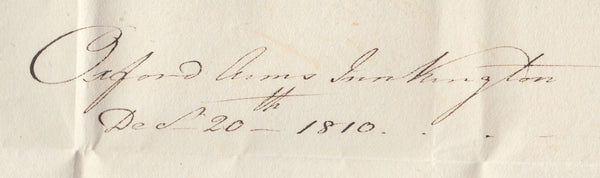 Oxford Arms Inn Kington
Decr. 20th — 1810 . . . -